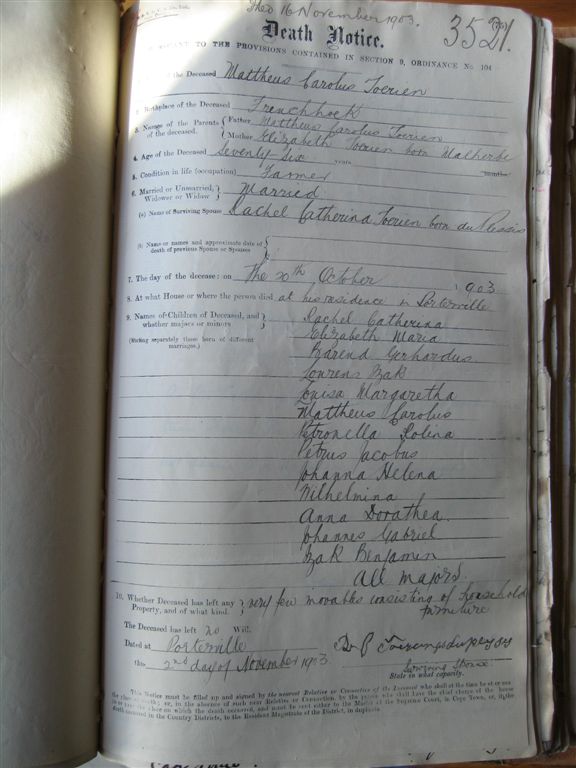 16 November 1903.
3521.
Death Notice.
TO THE PROVISIONS CONTAINED IN SECTION 9, ORDINANCE No 104
of the Deceased Mattheus Carolus Toerien
2. Birthplace of the Deceased Frenchhoek
3. Names of the Parents of the deceased. Father Mattheus Carolus Toerien
Mother Elizabeth Toerien born Malherbe
4. Age of the Deceased Seventy Six years months
5. Condition in life (occupation) Farmer
6. Married or Unmarried, Widower or Widow Married
(a) Name of Surviving Spouse Rachel Catherina Toerien born du Plessis
(b) Name or names and approximate date of death of previous Spouse or Spouses
7. The day of the decease: on The 20th October 1903
8. At what House or where the person died at his residence in Porterville
9. Names of Children of Deceased, and whether majors or minors
(Stating separately those born of different marriages.)
Rachel Catherina
Elizabeth Maria
Barend Gerhardus
Lourens Izak
Louisa Margaretha
Mattheus Carolus
Petronella Rolina
Petrus Jacobus
Johanna Helena
Wilhelmina
Anna Dorathea.
Johannes Gabriel
Izak Benjamin
All majors.
10. Whether Deceased has left any Property, and of what kind. very few movables consisting of household furniture
The Deceased has left no Will.
Dated at Porterville
this 2nd day of November 1903
Surviving Spouse
State in what capacity.
This Notice must be filled up and signed by the nearest Relative or Connection of the Deceased who shall at the time be at or near
the place of death; or, in the absence of such near Relative or Connection, by the person who shall have the chief charge of the house
in or the place on which the death occurred, and must be sent either to the Master of the Supreme Court, in Cape Town, or, if the
death occurred in the Country Districts, to the Resident Magistrate of the District, in duplicate.